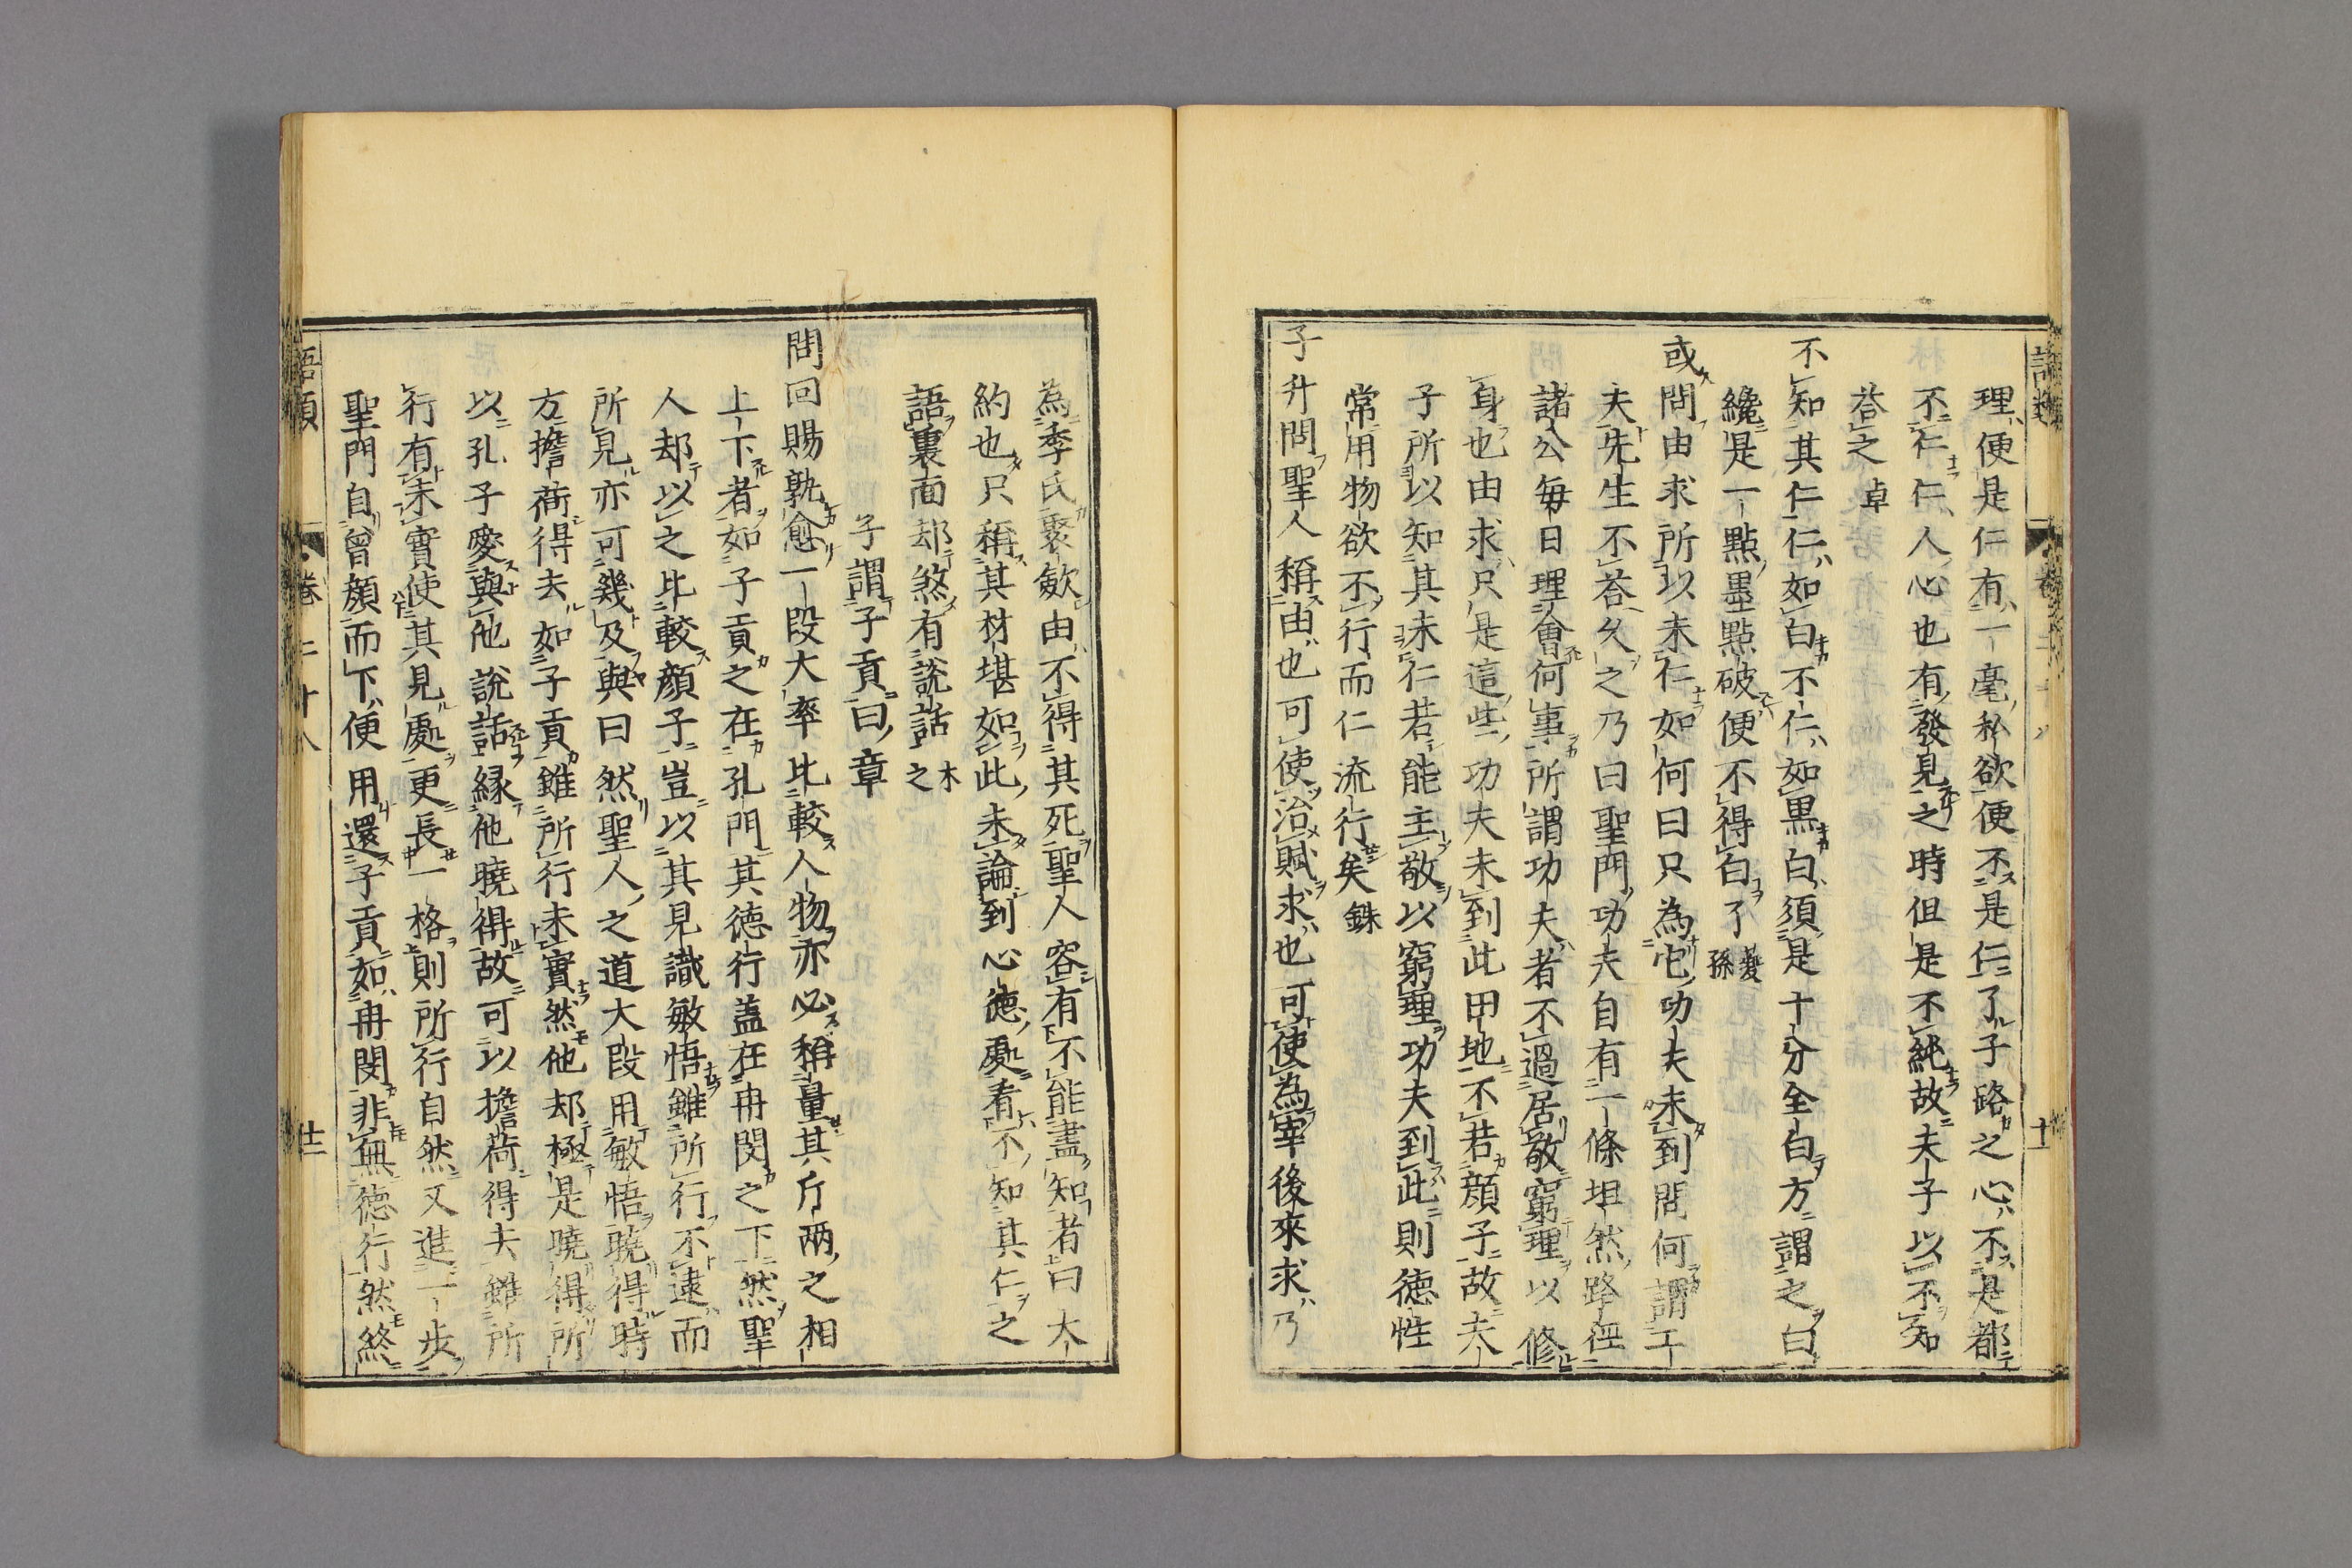 語類
卷二十八
十一
理便是仁有一毫私欲便不是仁了子路之心不是都
不仁仁人心也有發見之時但是不純故夫子以不知
荅之卓
不知其仁仁如白不仁如黑白須是十分全白方謂之白
纔是一點墨點破便不得白了夔孫
或問由求所以未仁如何曰只為它功夫未到問何謂工
夫先生不荅久之乃曰聖門功夫自有一條坦然路徑
諸公每日理會何事所謂功夫者不過居敬窮理以修
身也由求只是這些功夫未到此田地不若顔子故夫
子所以知其未仁若能主敬以窮理功夫到此則德性
常用物欲不行而仁流行矣銖
子升問聖人稱由也可使治賦求也可使為宰後來求乃
為季氏聚歛由不得其死聖人容有不能盡知者曰大
約也只稱其材堪如此未論到心德處看不知其仁之
語裏面却煞有說話木之
子謂子貢曰章
問回賜孰愈一段大率比較人物亦必稱量其斤兩之相
上下者如子貢之在孔門其德行盖在冉閔之下然聖
人却以之比較顔子豈以其見識敏悟雖所行不逮而
所見亦可幾及與曰然聖人之道大段用敏悟曉得時
方擔荷得去如子貢雖所行未實然他却極是曉得所
以孔子愛與他說話縁他曉得故可以擔荷得去雖所
行有未實使其見處更長一格則所行自然又進一步
聖門自曾顔而下便用還子貢如冉閔非無德行然終
語類
卷二十八
廿二